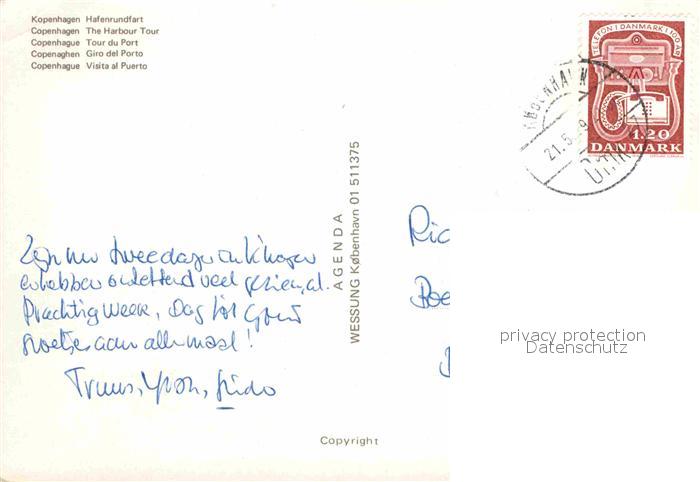 Kopenhagen Hafenrundfart
Copenhagen The Harbour Tour
Copenhague Tour du Port
Copenaghen Giro del Porto
Copenhague Visita al Puerto
TELEFON I DANMARK I 100 ÅR
1.20
DANMARK
KØBENHAVN
21.5
OMK
AGENDA
WESSUNG København 01 511375
Zijn nu twee dagen in K'hagen
en hebben ontettend veel gezien, al.
Prachtig weer. Dag tot
groetjes aan allemaal!
Truus, Yvon, Guido
Ric
Boe
privacy protection
Datenschutz
Copyright